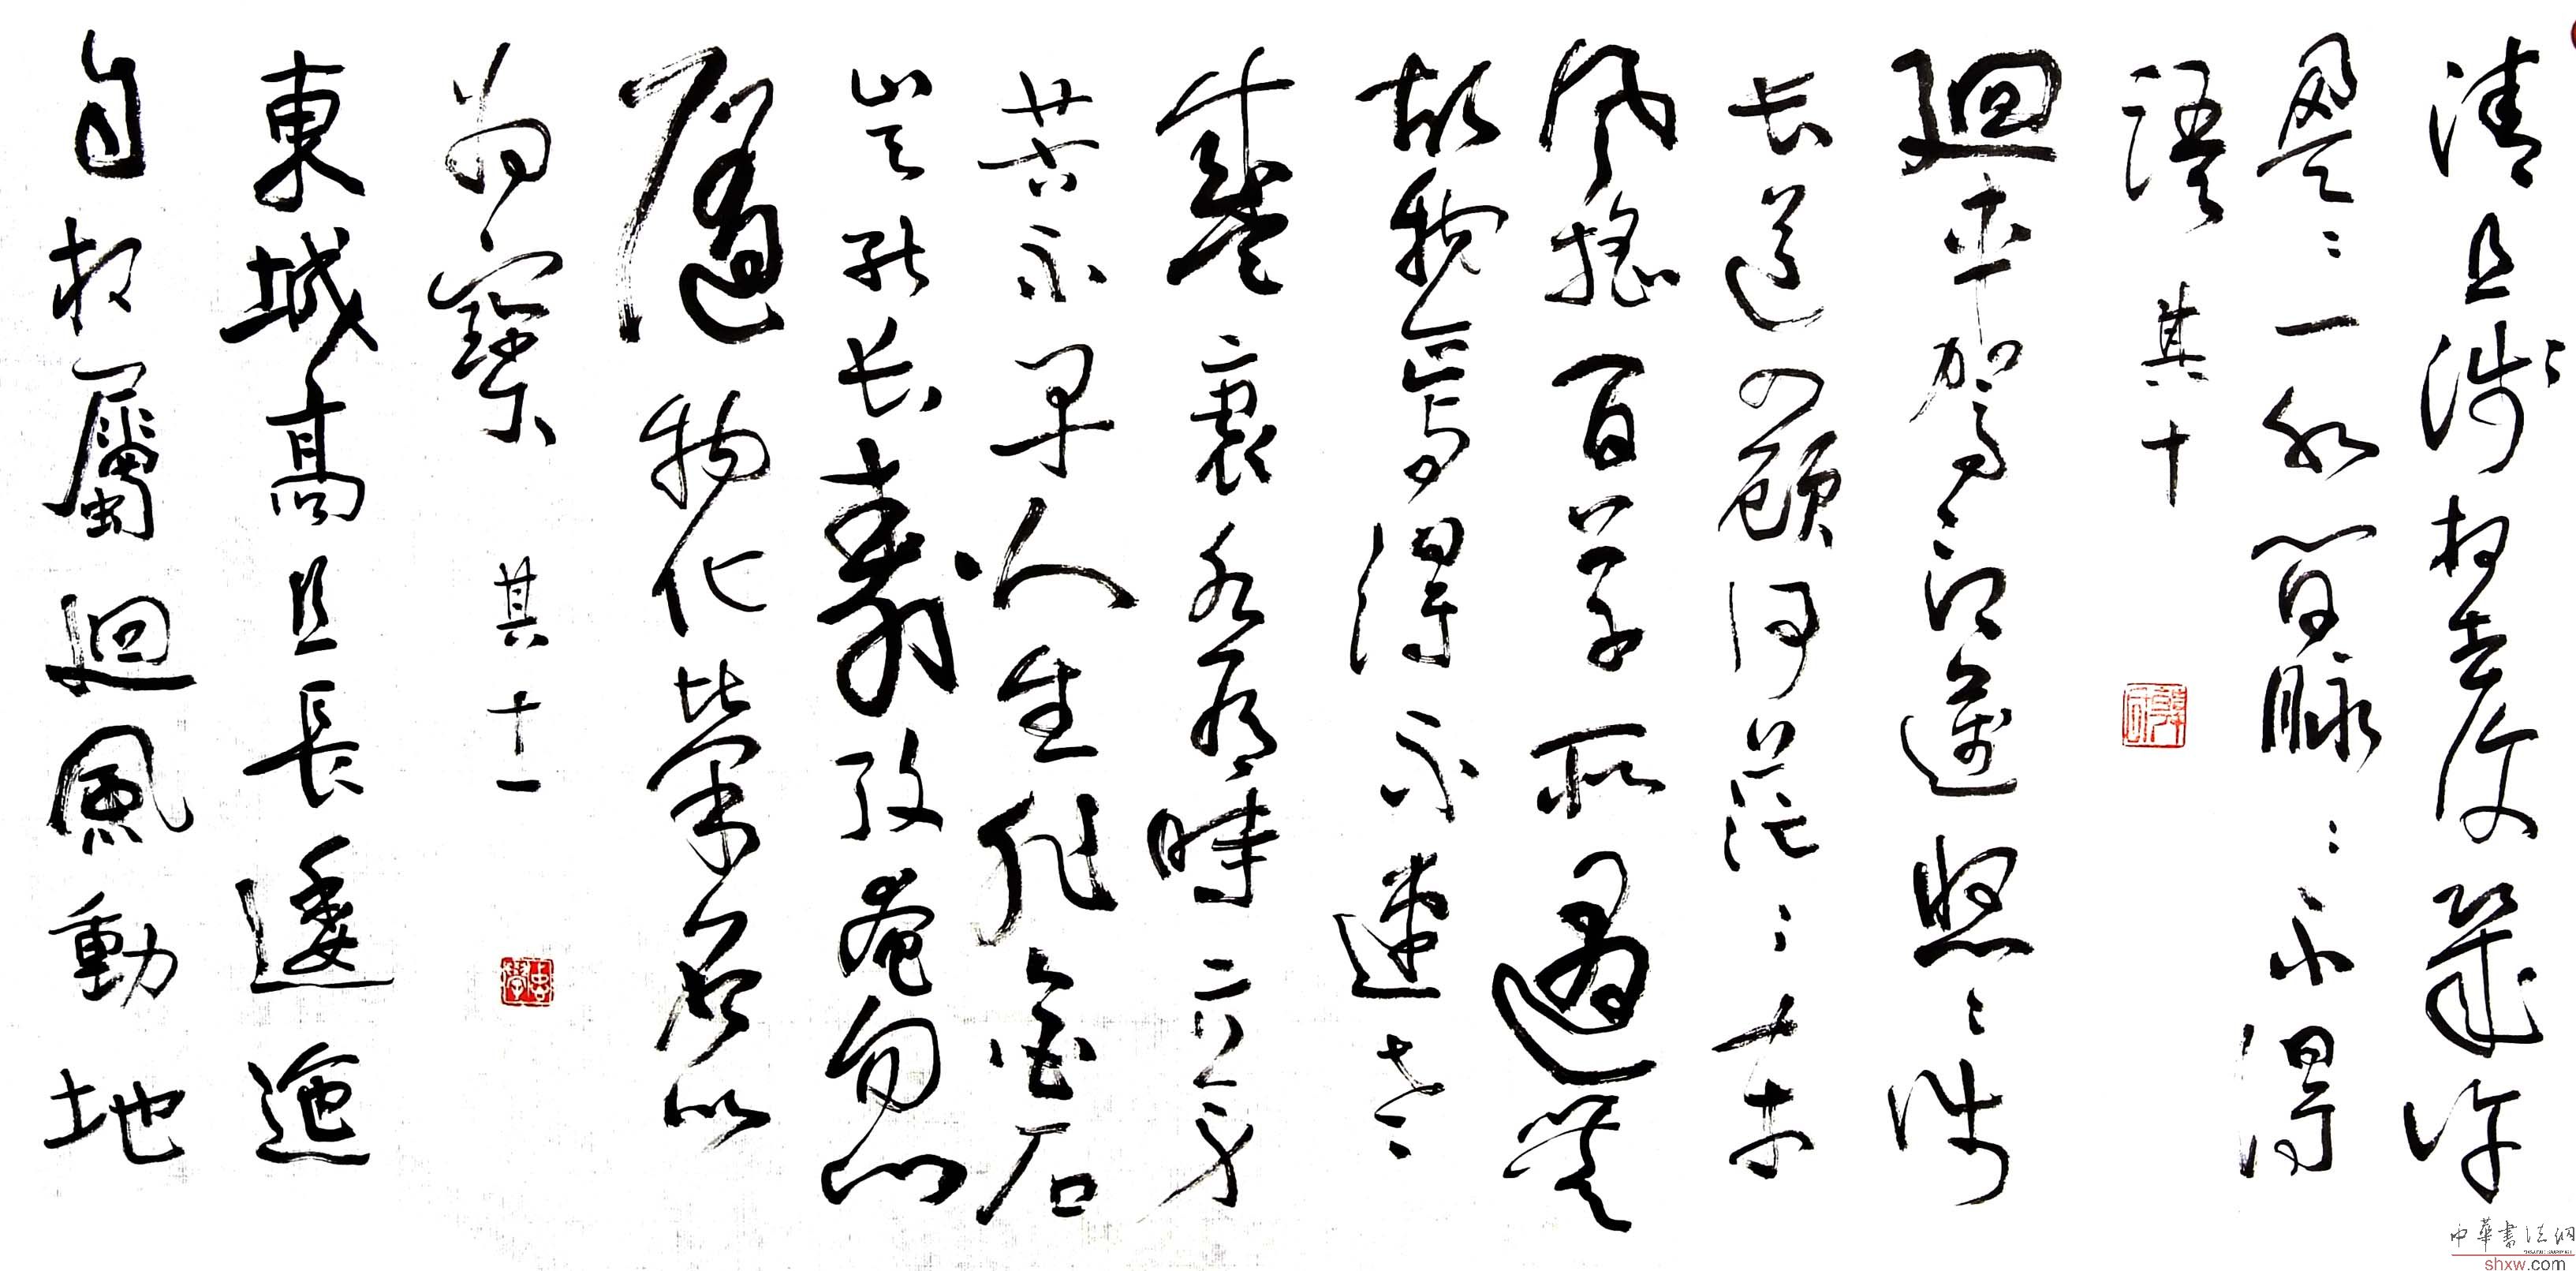 清且淺相去復幾許
盈々一水間脉々不得
語 其十
迴車駕言邁悠々涉
長道四顧何茫々東
風搖百草所遇無
故物焉得不速老
盛衰各有時立身
苦不早人生非金石
豈能長壽考奄忽
隨物化榮名以
為寶 其十一
東城高且長逶迤
自相屬迴風動地
中華書法網
shxw.com